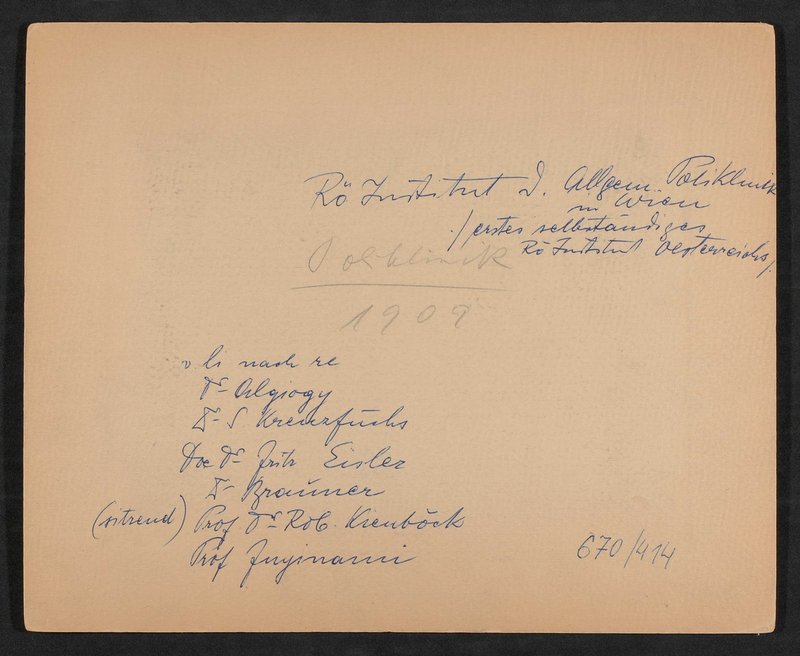 Rö Institut d. Allgem. Poliklinik
in Wien
/ erstes selbständiges
Rö Institut Oesterreichs /
Poliklinik
1909
v li nach re
Dr Algiogy
Dr S Kreuzfuchs
Doc Dr Fritz Eisler
Dr Brauner
(sitzend) Prof Dr Rob. Kienböck
Prof Fujinami
670/414